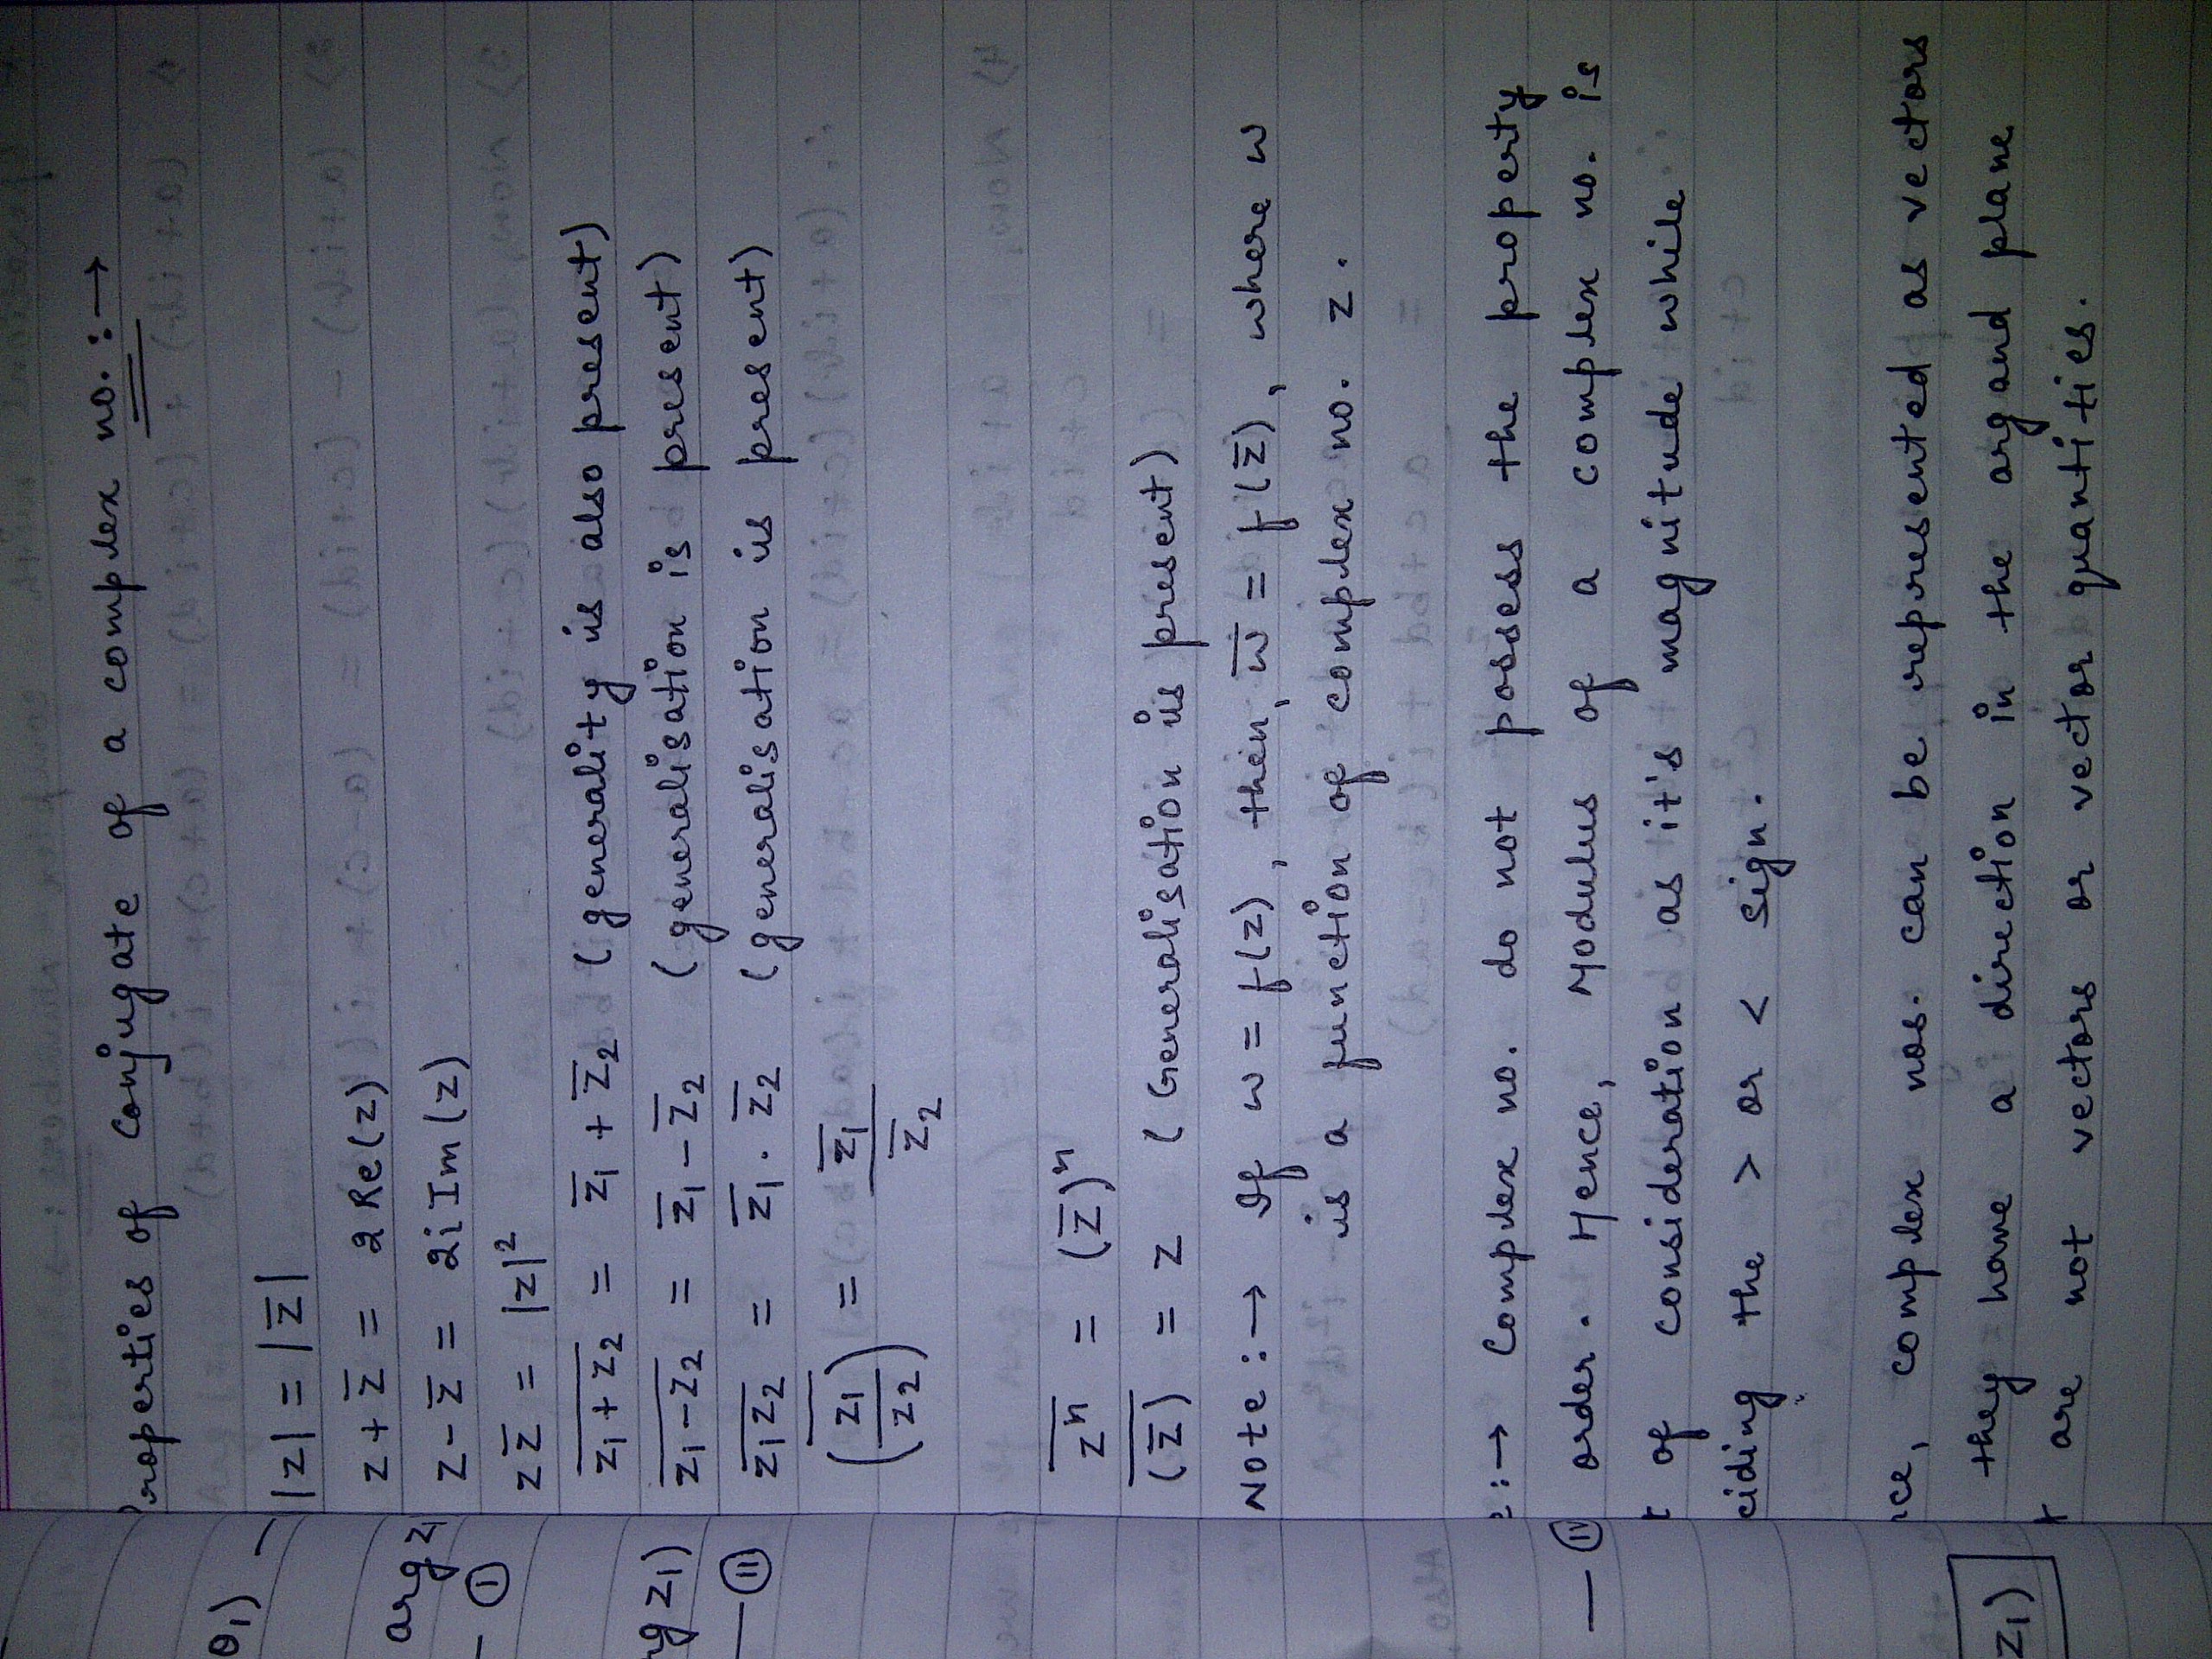 Properties of conjugate of a complex no. :→
θ₁) —
|z| = |z̅|
z + z̅ = 2 Re(z)
arg z₁
z - z̅ = 2i Im(z)
- Ⓘ
z z̅ = |z|²
\overline{z₁ + z₂} = z̅₁ + z̅₂ (generality is also present)
rg z₁)
\overline{z₁ - z₂} = z̅₁ - z̅₂ (generalisation is present)
— (II)
\overline{z₁z₂} = z̅₁ . z̅₂ (generalisation is present)
\overline{(z₁/z₂)} = z̅₁/z̅₂
\overline{zⁿ} = (z̅)ⁿ
\overline{(z̅)} = z (Generalisation is present)
Note :→ If w = f(z), then, w̅ = f(z̅), where w
is a function of complex no. z.
e :→ Complex no. do not possess the property
— (IV)
order. Hence, Modulus of a complex no. is
t of consideration as it's magnitude while
ciding the > or < sign.
nce, complex nos. can be represented as vectors
they have a direction in the argand plane
z₁)
t are not vectors or vector quantities.